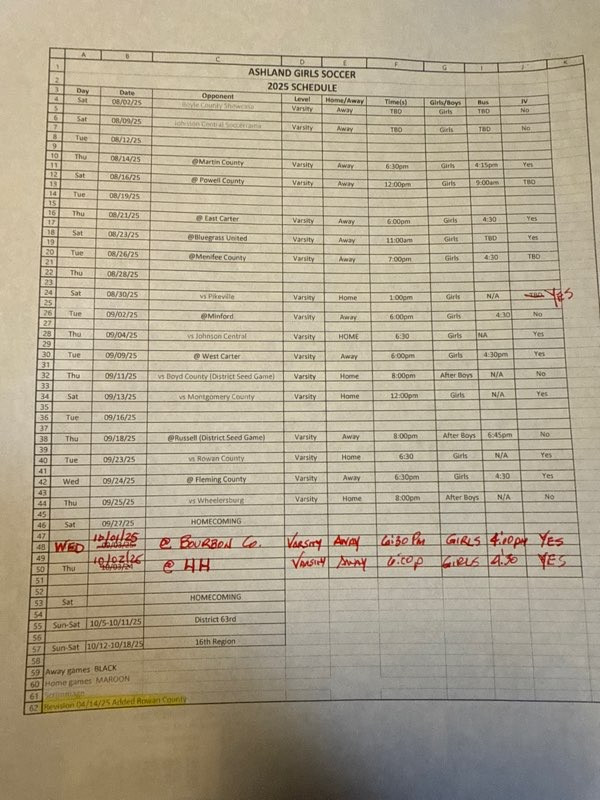 A B C D E F G I J K
1 ASHLAND GIRLS SOCCER
2 2025 SCHEDULE
3 Day Date Opponent Level Home/Away Time(s) Girls/Boys Bus JV
4 Sat 08/02/25 Boyle County Showcase Varsity Away TBD Girls TBD No
5
6 Sat 08/09/25 Johnson Central Soccerama Varsity Away TBD Girls TBD No
7
8 Tue 08/12/25
9
10 Thu 08/14/25
11 @Martin County Varsity Away 6:30pm Girls 4:15pm Yes
12 Sat 08/16/25
13 @ Powell County Varsity Away 12:00pm Girls 9:00am TBD
14 Tue 08/19/25
15
16 Thu 08/21/25
17 @ East Carter Varsity Away 6:00pm Girls 4:30 Yes
18 Sat 08/23/25
19 @Bluegrass United Varsity Away 11:00am Girls TBD Yes
20 Tue 08/26/25
21 @Menifee County Varsity Away 7:00pm Girls 4:30 TBD
22 Thu 08/28/25
23
24 Sat 08/30/25
25 vs Pikeville Varsity Home 1:00pm Girls N/A TBD YES
26 Tue 09/02/25 @Minford Varsity Away 6:00pm Girls 4:30 No
27
28 Thu 09/04/25 vs Johnson Central Varsity HOME 6:30 Girls NA Yes
29
30 Tue 09/09/25 @ West Carter Varsity Away 6:00pm Girls 4:30pm Yes
31
32 Thu 09/11/25 vs Boyd County (District Seed Game) Varsity Home 8:00pm After Boys N/A No
33
34 Sat 09/13/25 vs Montgomery County Varsity Home 12:00pm Girls N/A Yes
35
36 Tue 09/16/25
37
38 Thu 09/18/25 @Russell (District Seed Game) Varsity Away 8:00pm After Boys 6:45pm No
39
40 Tue 09/23/25 vs Rowan County Varsity Home 6:30 Girls N/A Yes
41
42 Wed 09/24/25 @ Fleming County Varsity Away 6:30pm Girls 4:30 Yes
43
44 Thu 09/25/25 vs Wheelersburg Varsity Home 8:00pm After Boys N/A No
45
46 Sat 09/27/25 HOMECOMING
47 10/01/25
48 WED @ BOURBON CO. VARSITY AWAY 6:30 PM GIRLS 4:00pm YES
49 10/02/25
50 Thu @ HH VARSITY AWAY 6:00p GIRLS 4:30 YES
51
52
53 Sat HOMECOMING
54
55 Sun-Sat 10/5-10/11/25 District 63rd
56
57 Sun-Sat 10/12-10/18/25 16th Region
58
59 Away games BLACK
60 Home games MAROON
61 Scrimmage
62 Revision 04/14/25 Added Rowan County